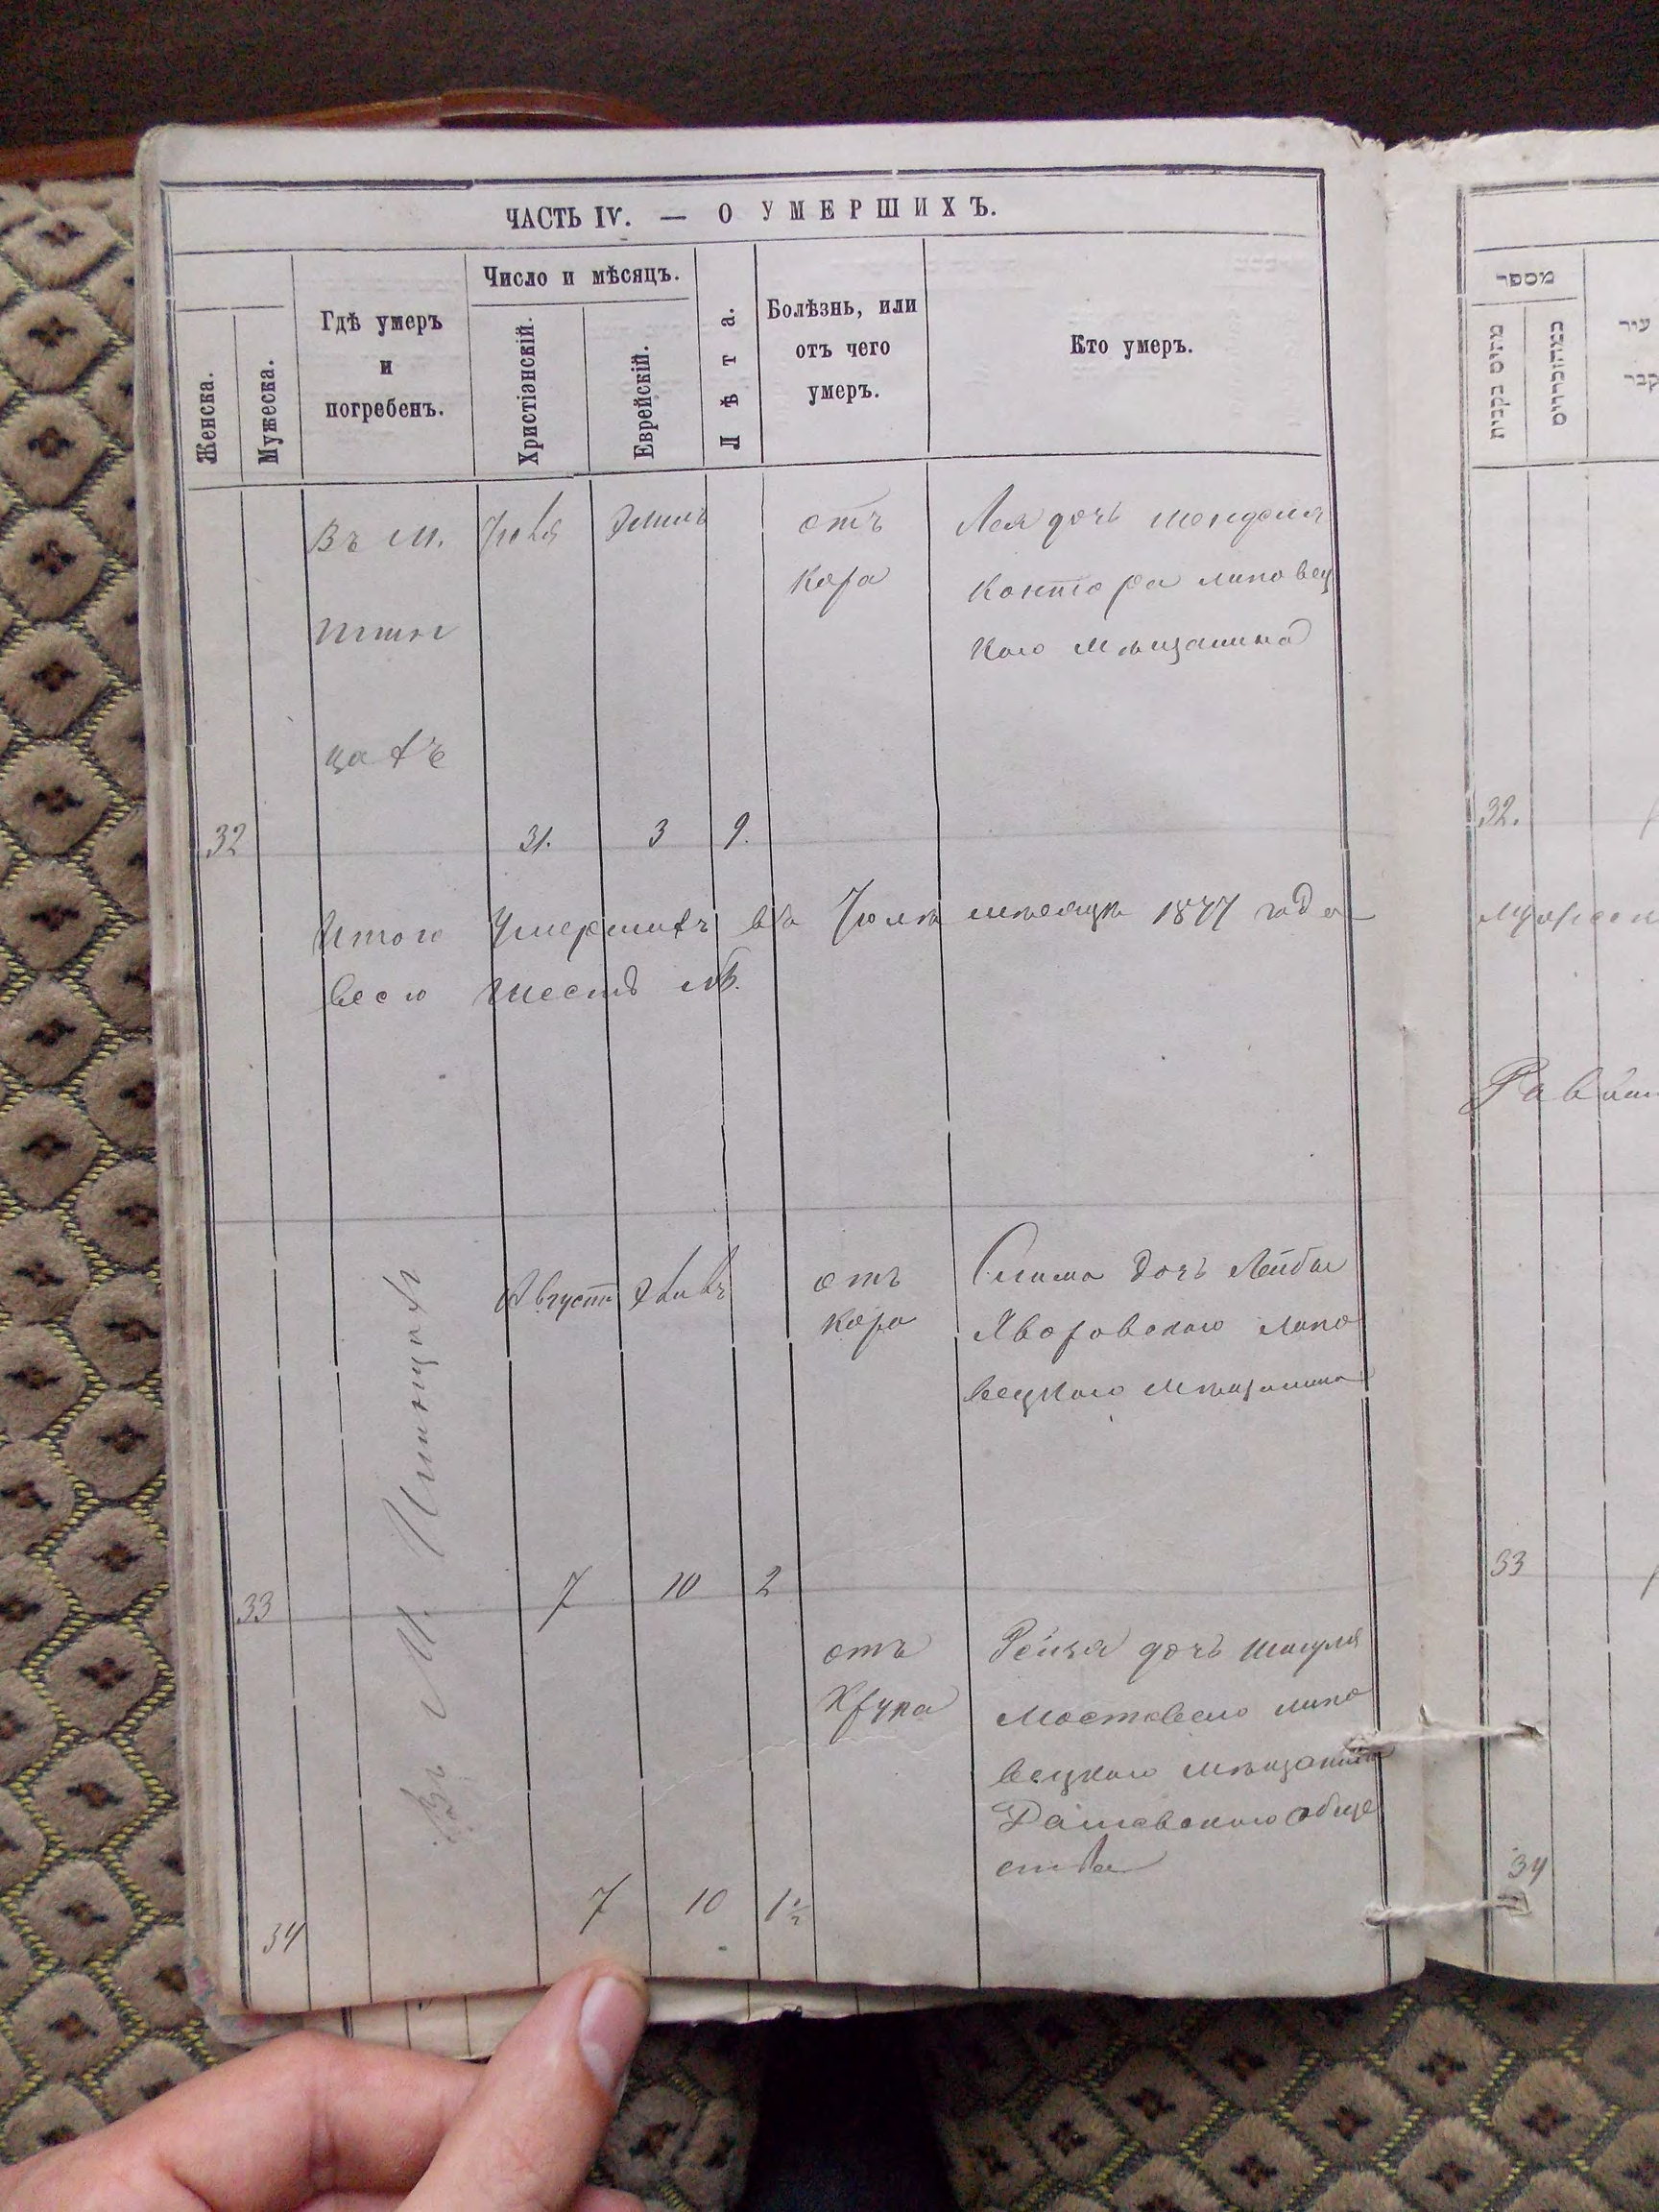 ЧАСТЬ IV. — О УМЕРШИХЪ.
Женска.
Мужеска.
Гдѣ умеръ
и
погребенъ.
Число и мѣсяцъ.
Христіанскій.
Еврейскій.
Лѣта.
Болѣзнь, или
отъ чего
умеръ.
Кто умеръ.
Въ м.
цахъ
32
31.
3
9.
отъ
кора
Лея дочь Менделя
Контора липовец
кого мѣщанина
Итого Умершихъ въ Юлѣ мѣсяцѣ 1877 года
всего шесть
Въ М. Илинцахъ
33
Августъ
7
10
2
отъ
кора
Сима дочь Лейбы
Яворовского липо
вецкого мѣщанина
34
7
10
1½
отъ
Крупа
Рейзя дочь
липо
вецкого мѣщанина
Дашевского обще
ства
מספר
עיר
קבר
32.
33
34